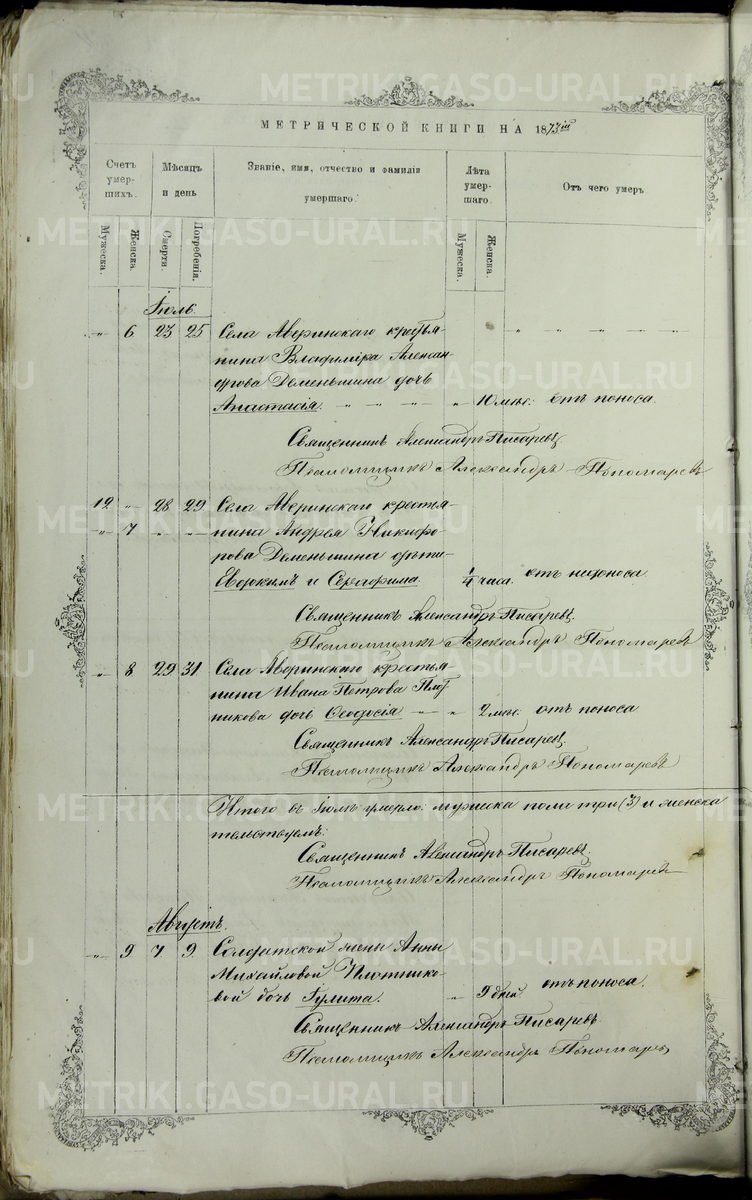 МЕТРИЧЕСКОЙ КНИГИ НА 1873й
Счетъ умерших.
Мѣсяцъ и день
Званіе, имя, отчество и фамилія умершаго.
Лѣта умершаго.
Отъ чего умеръ
Мужеска.
Женска.
Смерти.
Погребенія.
Мужеска.
Женска.
Іюль.
" 6 23 25 Села Аверинскаго кресть-
янина Владиміра Алексан-
дрова Деменьшина дочь
Анастасія. " 10 мѣс: отъ поноса.
Священникъ Александръ Писаревъ
Псаломщикъ Александръ Пономаревъ
12 " 28 29 Села Аверинскаго кресть-
" 7 " " янина Андрея Никифо-
рова Деменьшина дѣти
и Серафима. 1/4 часа. отъ
Священникъ Александръ Писаревъ
Псаломщикъ Александръ Пономаревъ
" 8 29 31 Села Аверинскаго кресть-
янина Ивана Петрова Плот-
никова дочь Ѳеодосія " " 2 мѣс. отъ поноса
Священникъ Александръ Писаревъ.
Псаломщикъ Александръ Пономаревъ
Итого въ Іюлѣ умерло: мужеска пола три (3) и женска
Священникъ Александръ Писаревъ.
Псаломщикъ Александръ Пономаревъ
Августъ.
" 9 7 9 Солдатской жены Анны
Михайловой Плотнико-
вой дочь Іулита. " 9 дней. отъ поноса.
Священникъ Александръ Писаревъ
Псаломщикъ Александръ Пономаревъ
METRIKI.GASO-URAL.RU